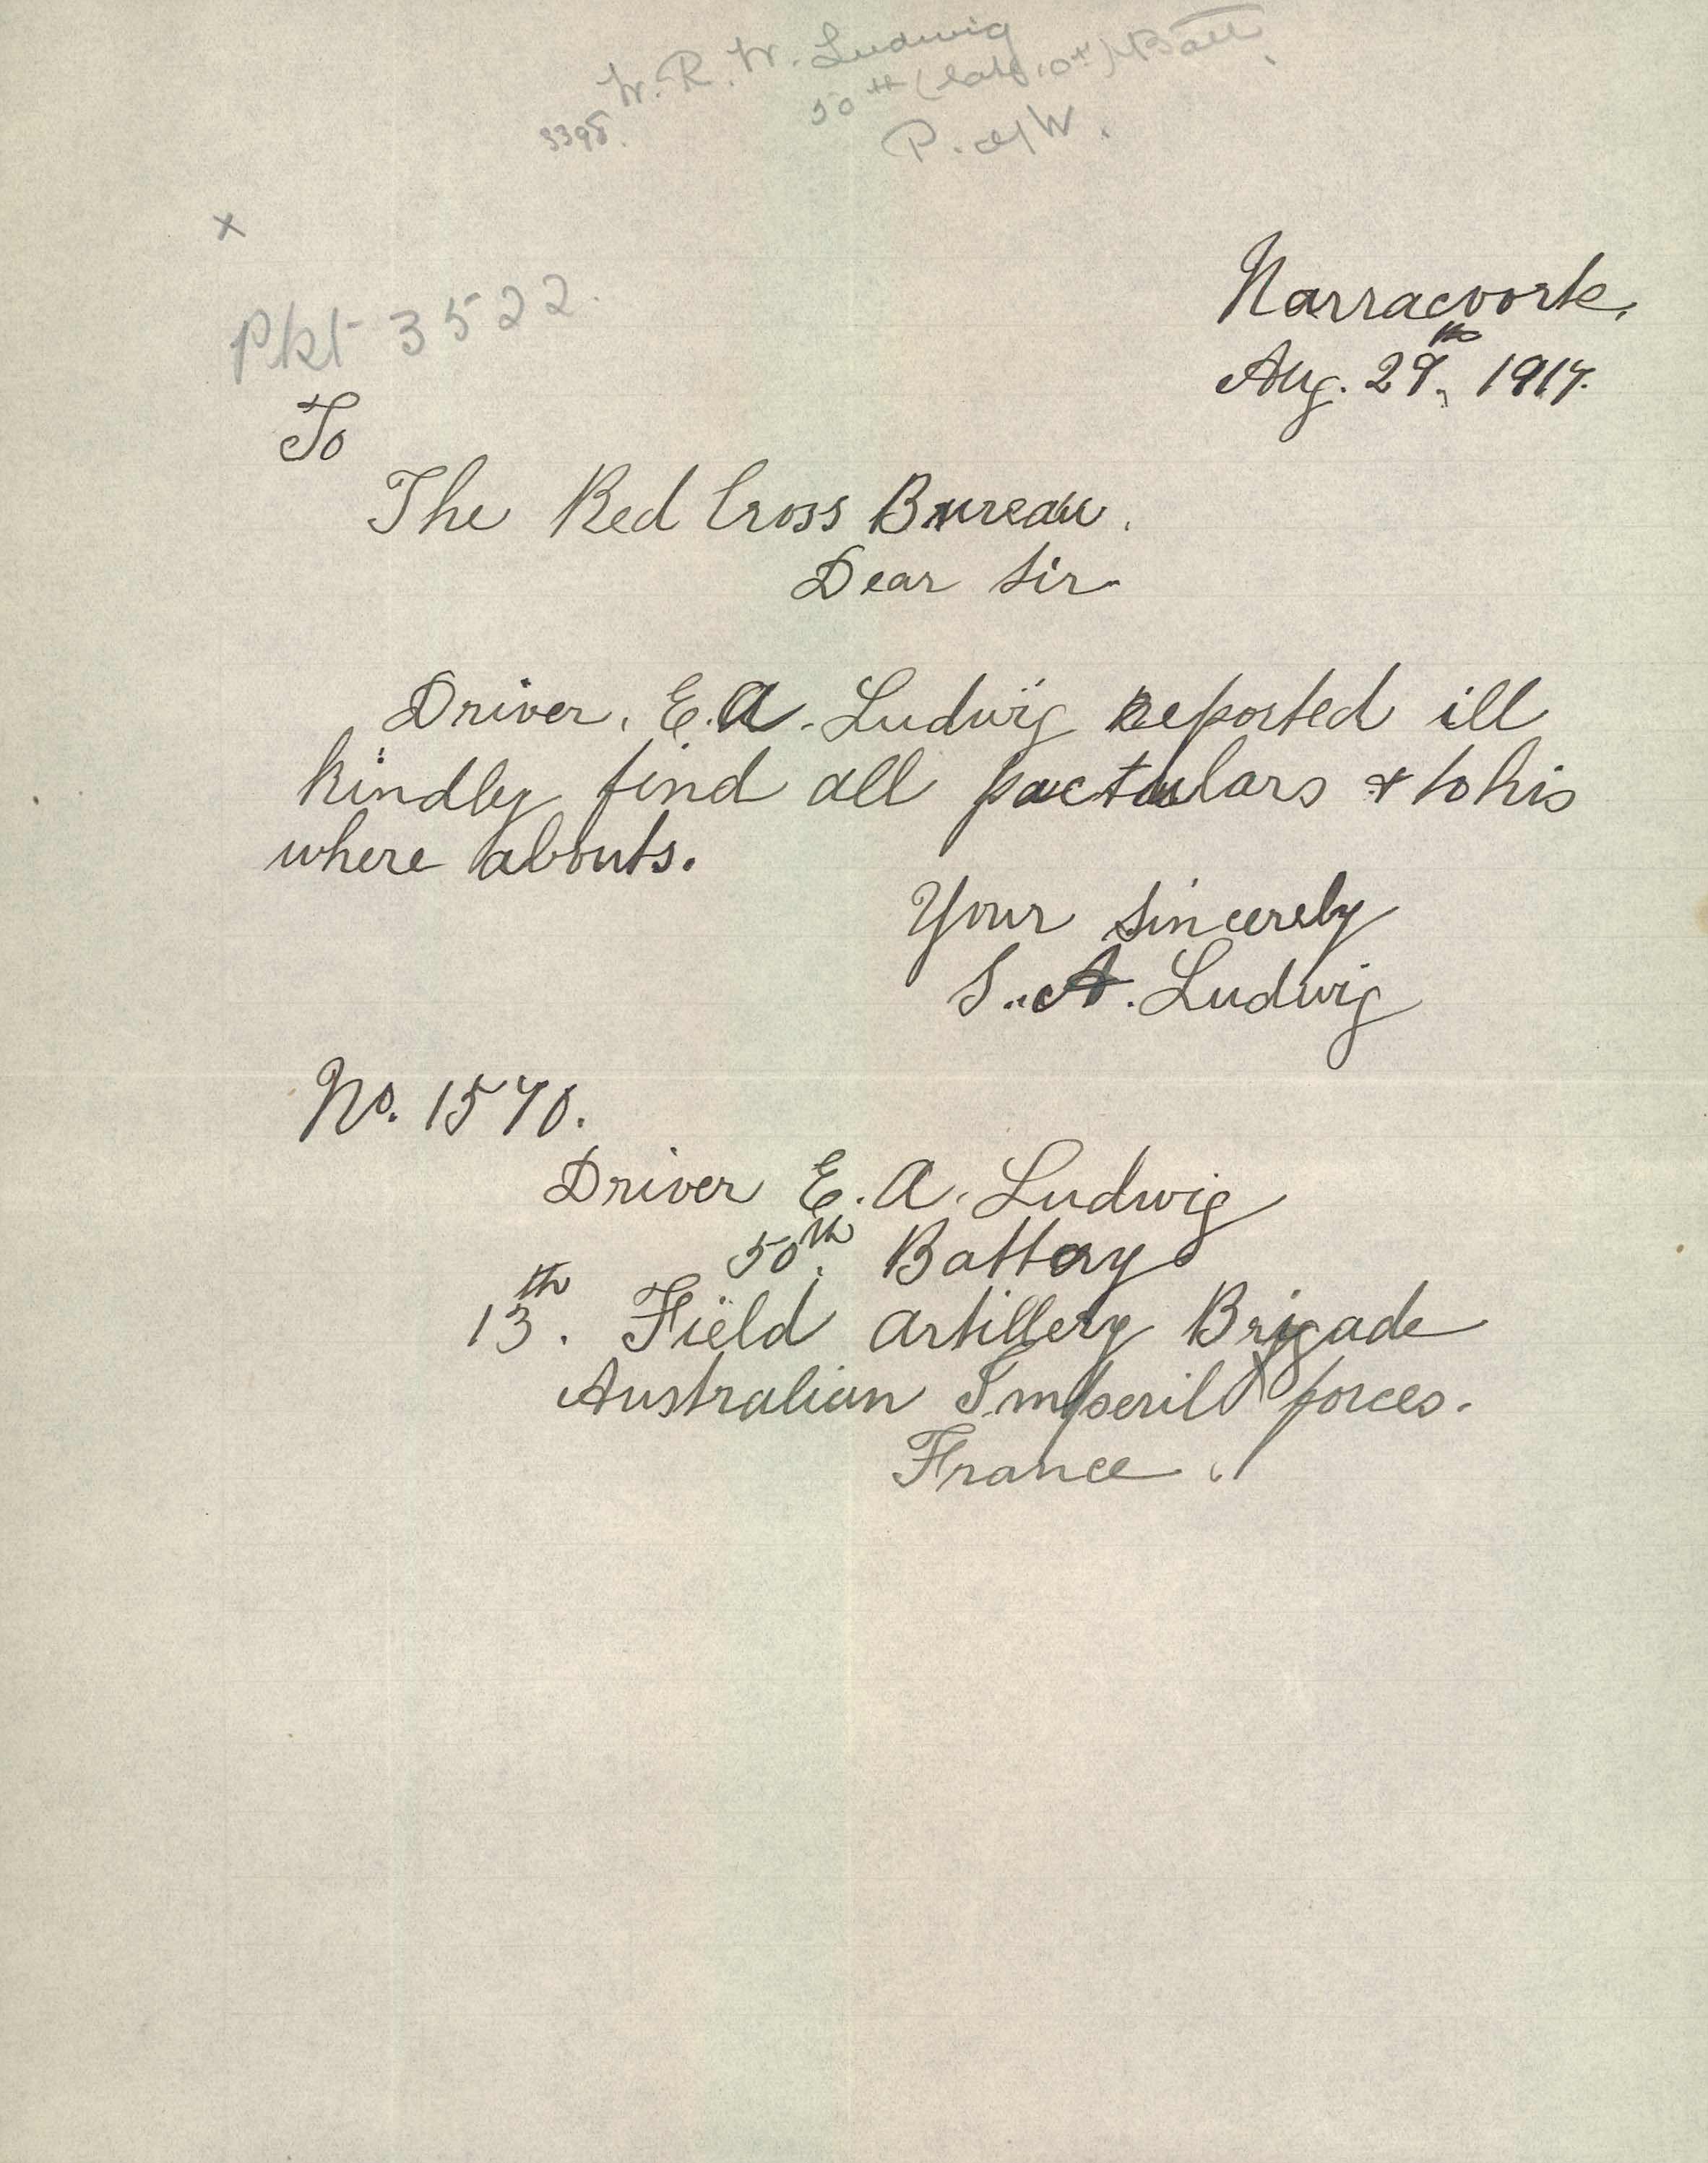 W. R. W. Ludwig
3398. 50th (late 10th) Batt.
P. of W.
x
Pkt 3522.
Narracoorte.
Aug. 29th, 1917.
To
The Red Cross Bureau.
Dear Sir
Driver. E. A. Ludwig Reported ill
Kindly find all pactulars & to his
where abouts.
Your Sincerely
S. A. Ludwig
No. 1570.
Driver E. A. Ludwig
50th. Battery
13th. Field Artillery Brigade
Australian Imperil forces.
France.